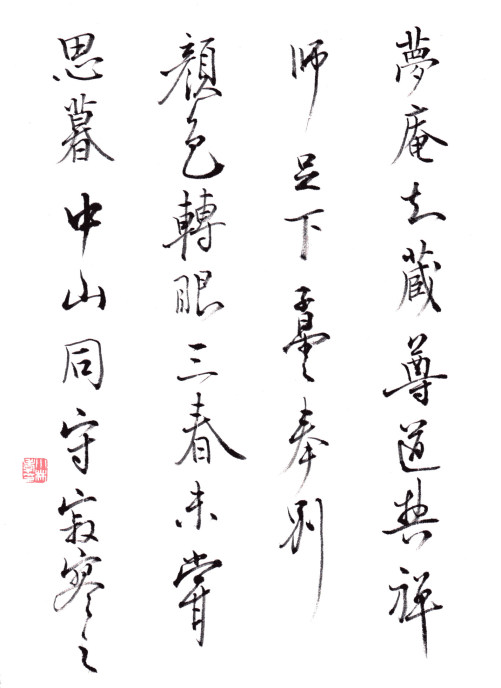 夢庵知蔵尊道契禅
師足下奉別
顔色轉眼三春未嘗
思暮中山同守寂寥之